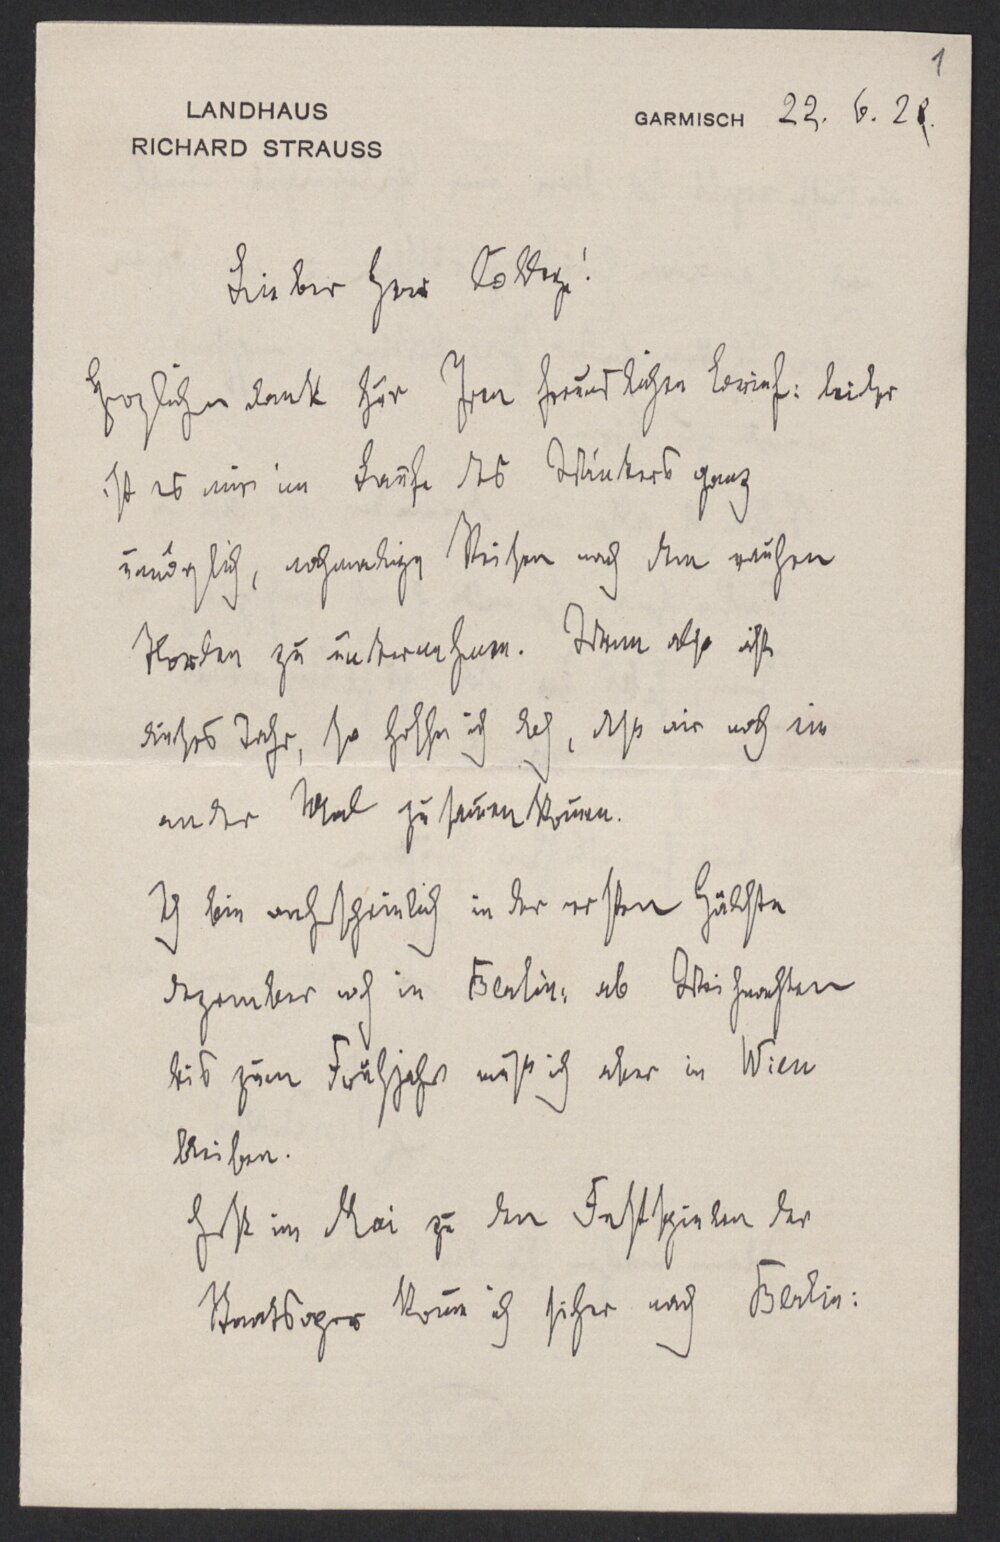 1
LANDHAUS
RICHARD STRAUSS
GARMISCH 22. 6. 28.
Lieber Herr College!
Herzlichen Dank für Ihren freundlichen Brief: leider
ist es mir im Laufe des Winters ganz
unmöglich, nochmalige Reisen nach dem rauhen
Norden zu unternehmen. Wenn also nicht
dieses Jahr, so hoffe ich doch, dass wir noch ein
ander Mal zusammenkommen.
Ich bin wahrscheinlich in der ersten Hälfte
Dezember noch in Berlin: ab Weihnachten
bis zum Frühjahr muss ich aber in Wien
bleiben.
Erst im Mai zu den Festspielen der
Staatsoper komme ich sicher nach Berlin: